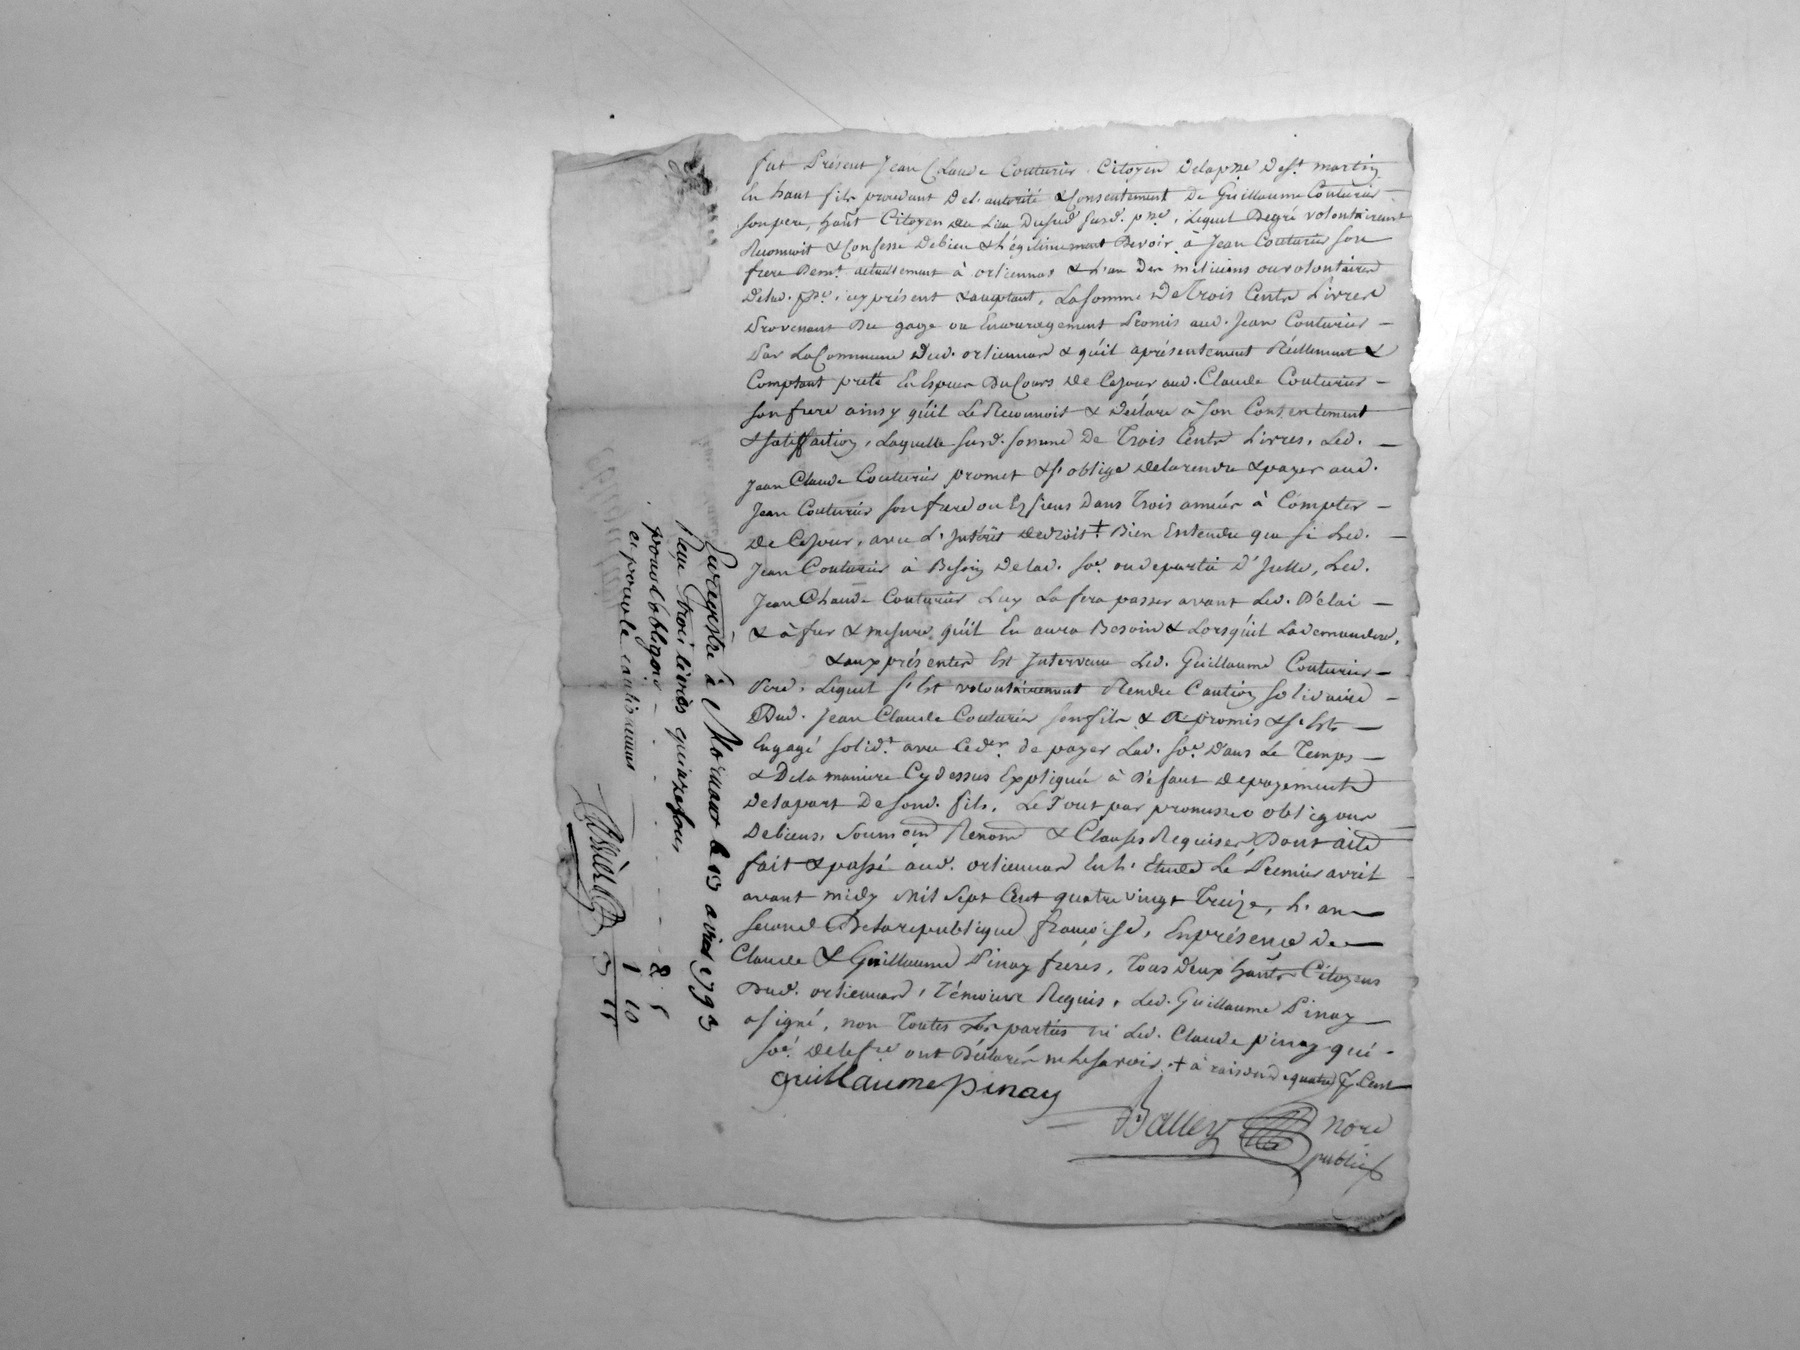 fut Présent Jean Claude Couturier Citoyen delapsse De st martin
En haut fils procedant De l'autorité & Consentement De Guillaume Couturier
son pere, habt Citoyen du Lieu Dusud susd. psse, Lequel Degré volontairemt
Reconnoit & Confesse Debien & Légitimement Devoir à Jean Couturier son
frere Demt actuellement à orliennas & L'un Des miliciens ou volontaires
Delad. psse, icy présent & acceptant, La somme De Trois Cents Livres
Provenant Du gage ou Encouragement Promis aud. Jean Couturier
Par La Commune Dud. orliennas & qu'il a présentement Réellement &
Comptant preté En Espèces Du Cours de Ce jour aud. Claude Couturier
son frere ainsy qu'il Le Reconnoit & Déclare à son Consentement
& satisfaction, Laquelle susd. somme De Trois Cents Livres, Led.
Jean Claude Couturier promet & s'oblige de la rendre & payer aud.
Jean Couturier son frere ou Es siens Dans Trois années à Compter
De Ce jour, avec L'Intérêt de droit + Bien Entendu que si Led.
Jean Couturier à Besoin De lad. soe ou de partie d'Icelle, Led.
Jean Claude Couturier Luy La fera passer avant Led. Délai
& à fur & mesure qu'il En aura Besoin & Lorsqu'il La demandera,
& aux présentes Est Intervenu Led. Guillaume Couturier
Pere, Lequel s'Est volontairement Rendu Caution solidaire
Dud. Jean Claude Couturier son fils & a promis & s'Est
Engagé solidt avec Cedr de payer Lad. soe Dans Le Temps
& De la maniere Cy dessus Expliquée à Défaut de payement
De la part De sond. fils, Le Tout par promesse obligaon
De biens, soumon Renond & Clauses Requises Dont acte
fait & passé aud. orliennas En L'Etude Le Premier avril
avant midy Mil Sept Cent quatre vingt Treize, L'an
second De la republique françoise, En présence De
Claude & Guillaume Pinay freres, Tous deux habts Citoyens
Dud. orliennas, Témoins Requis, Led. Guillaume Pinay
a signé, non Toutes Les parties ni Led. Claude pinay qui
ont Déclaré ne Le savoir + à raison de quatre p. Cent
guillaume pinay
Balley nore
public
Enregistré à Mornant le 13 avril 1793
Reçu trois livres quinze sous
pour l'obligaon 2 5
et pour le cautionnement 1 10
3 15